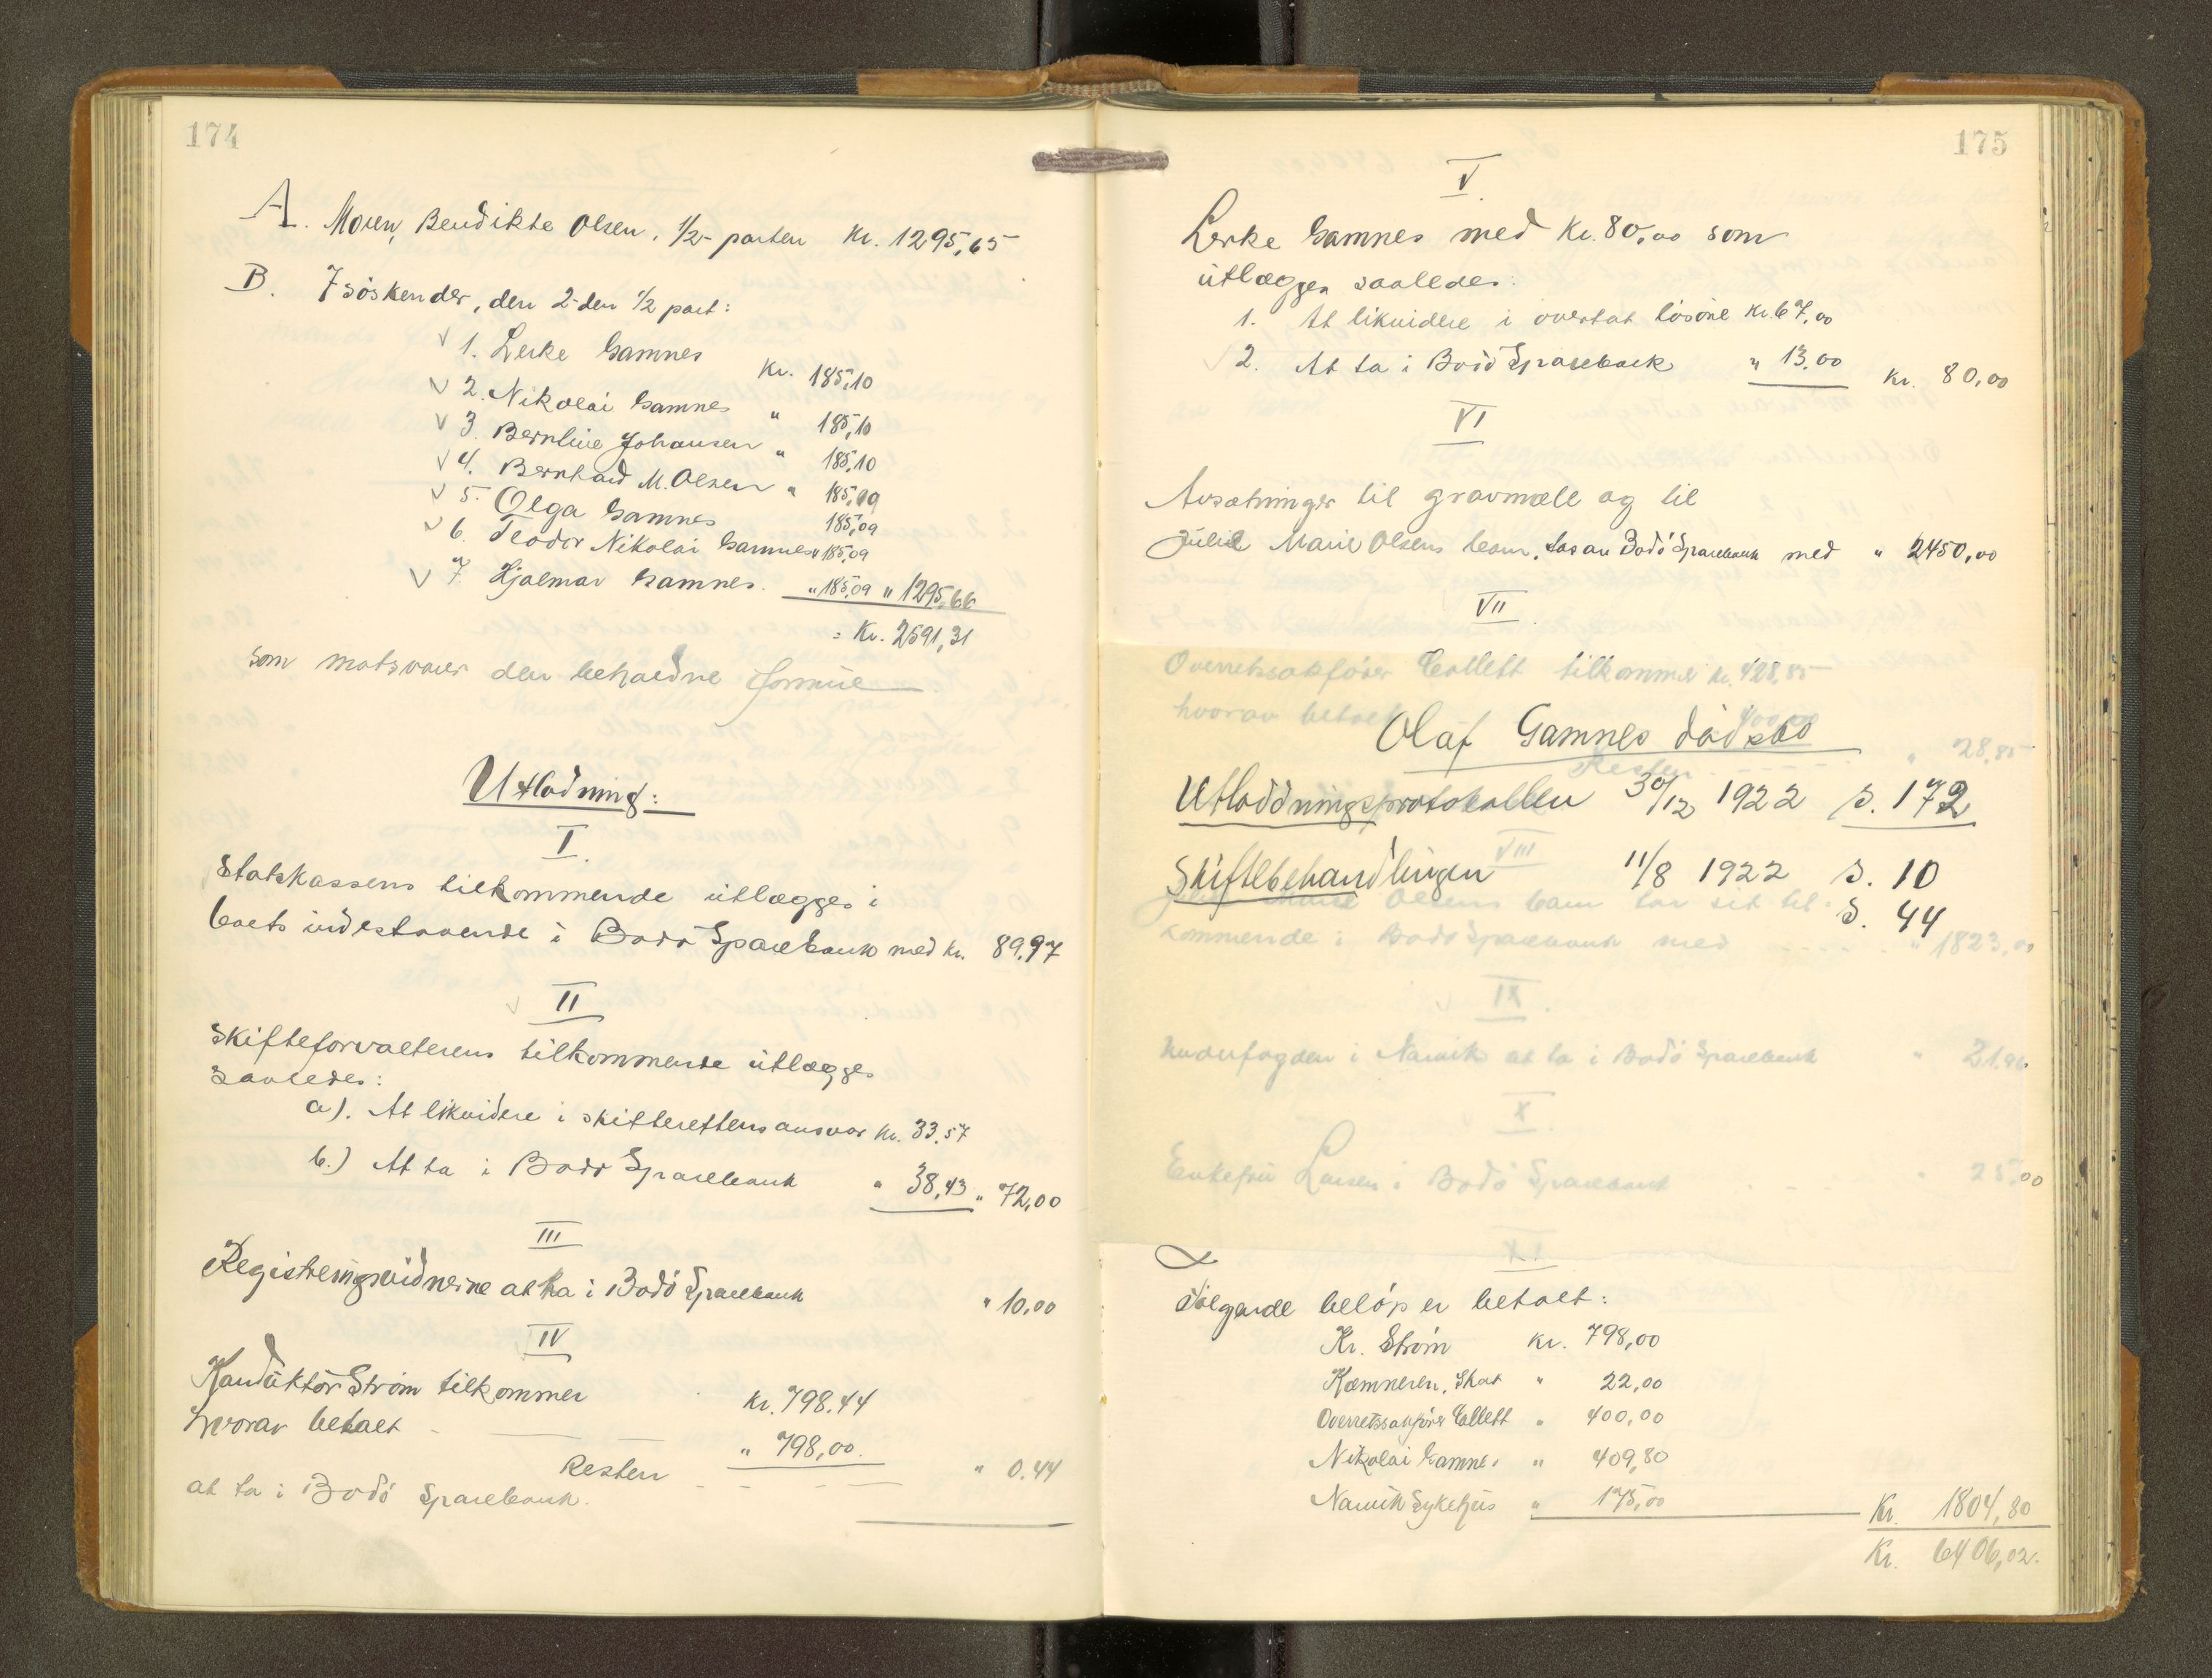 174
A. Moren, Bendikte Olsen, 1/2-parten Kr. 1295,65
B. 7 söskender, den 2-den 1/2 part:
√ 1. Lerke Gamnes Kr. 185,10
√ 2. Nikolai Gamnes " 185,10
√ 3. Berntine Johansen " 185,10
√ 4. Bernhard M. Olsen " 185,09
√ 5. Olga Gamnes 185,09
√ 6. Teodor Nikolai Gamnes " 185,09
√ 7. Hjalmar Gamnes. " 185,09 " 1295,66
= Kr. 2591,31
som motsvarer den beholdne formue
Utlodning:
I.
Statskassens tilkommende utlægges i
boets indestaaende i Bodö Sparebank med kr. 89,97
√ II
Skifteforvalterens tilkommende utlægges
saaledes:
a). At likvidere i skifterettens ansvar kr. 33,57
b.) At ta i Bodö Sparebank " 38,43 " 72,00
III
Registreringsvidnerne at ta i Bodö Sparebank " 10,00
IV
Konduktör Ström tilkommer kr. 798,44
hvorav betalt " 798,00
Resten " 0,44
at ta i Bodö Sparebank.
175
V.
Lerke Gamnes med Kr. 80,00 som
utlægges saaledes:
1. At likvidere i overtat lösöre Kr. 67,00
√ 2. At ta i Bodö Sparebank " 13,00 Kr. 80,00
VI
Avsætninger til gravmæle og til
Julie Marie Olsens barn, tas av Bodö Sparebank med " 2450,00
VII.
Overretssakförer Collett tilkommer kr. 428,85
hvorav betalt 400,00
Olaf Gamnes dödsbo
Resten " 28,85
Utloddningsprotokollen 30/12 1922 s. 172
VIII
Skiftebehandlingen 11/8 1922 s. 10
Marie Olsens barn tar sit til-
s. 44
kommende i Bodö Sparebank med " 1823,00
√ IX.
Underfogden i Narvik at ta i Bodö Sparebank " 21,96
X.
Enkefru Larsen i Bodö Sparebank " 25,00
XI
Fölgende belöp er betalt:
Kr. Ström kr. 798,00
Kæmneren, Skat " 22,00
Overretssakförer Collett " 400,00
Nikolai Gamnes " 409,80
Narvik Sykehus " 175,00 Kr. 1804,80
Kr. 6406,02.